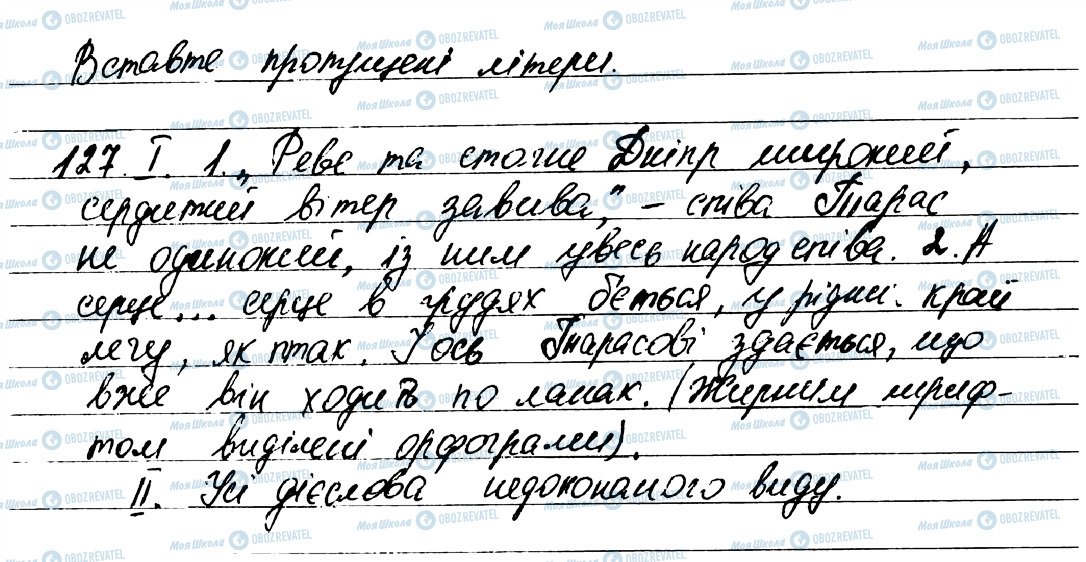 Вставте пропущені літери.
127. I. 1. „Реве та стогне Дніпр широкий,
сердитий вітер завива," – співа Тарас
не одинокий, із ним увесь народ співа. 2. А
серце... серце в грудях б'ється, у рідний край
лечу, як птах. І ось Тарасові здається, що
вже він ходить по ланах. (Жирним шриф-
том виділені орфограми).
II. Усі дієслова недоконаного виду.
Моя Школа OBOZREVATEL